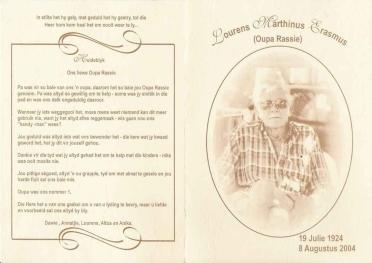 In stilte het hy gely, met geduld het hy gestry, tot die
Heer hom kom haal het om nooit weer te ly...
Huldeblyk
Ons liewe Oupa Rassie
Pa was vir so baie van ons 'n oupa, daarom het so baie jou Oupa Rassie
genoem. Pa was altyd so gewillig om te help - soms was jy omtrent in die
pad en was ons dalk ongeduldig daaroor.
Wanneer jy iets weggegooi het, moes mens want niemand kan dit meer
gebruik nie, want jy het altyd alles reggemaak - wie gaan nou ons
"handy-man" wees?
Jou geduld was altyd iets wat ons bewonder het - die kere wat jy kwaad
geword het, het jy dit vir jouself gehou.
Dankie vir die tyd wat jy altyd gehad het om te help met die kinders - niks
was ooit moeite nie.
Jou pittige sêgoed, altyd 'n ou grappie, tyd om met almal te gesels en jou
harde fluit sal ons baie mis.
Oupa was ons nommer 1.
Die Here het u van ons geskei om u van u lyding te bevry, maar u liefde
en voorbeeld sal ons altyd by bly.
Dawie, Annatjie, Lourens, Altsa en Anika.
Lourens Marthinus Erasmus
(Oupa Rassie)
19 Julie 1924
8 Augustus 2004